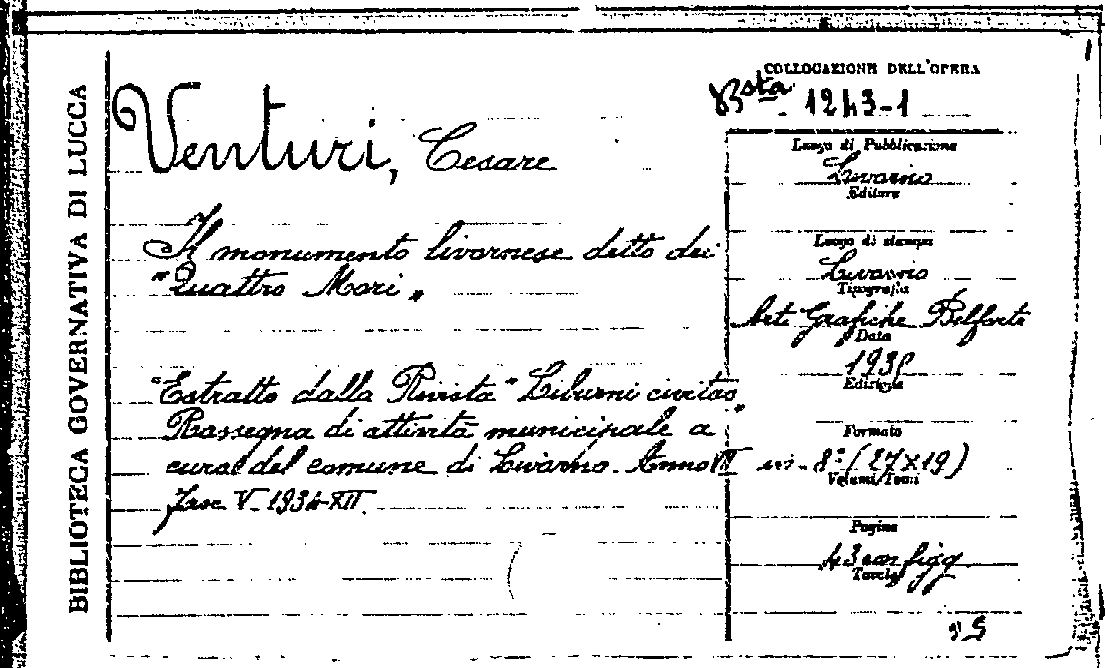 BIBLIOTECA GOVERNATIVA DI LUCCA
COLLOCAZIONE DELL'OPERA
Bsta. 1243-1
Venturi, Cesare
Il monumento livornese detto dei
"Quattro Mori"
"Estratto dalla Rivista "Liburni civitas"
Rassegna di attività municipale a
cura del comune di Livorno. Anno VII
Fasc V - 1934-XII.
Luogo di Pubblicazione
Livorno
Editore
Luogo di stampa
Livorno
Tipografia
Arti Grafiche Belforte
Data
Edizione
Formato
in-8° (27×19)
Volumi/Tomi
Pagine
43 con figg
Tavole